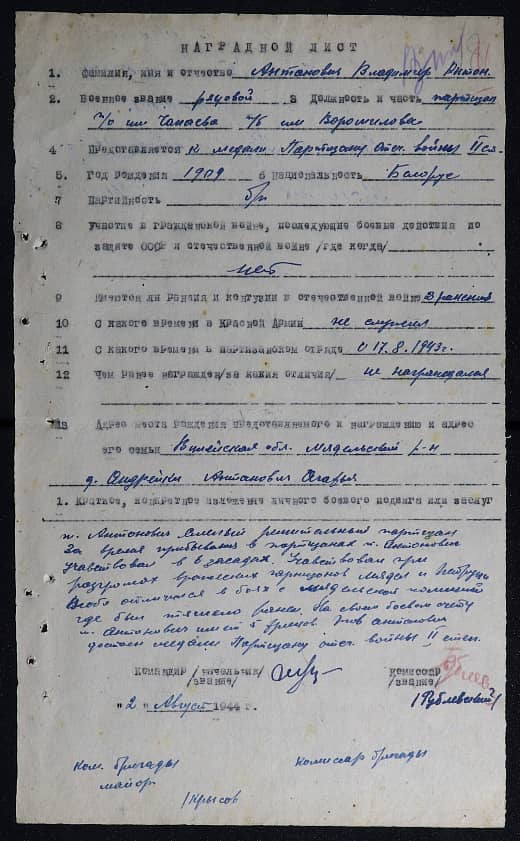 НАГРАДНОЙ ЛИСТ
1. Фамилия, имя и отчество Антанович Владимир Антон.
2. Военное звание рядовой 3 Должность и часть партизан
п/о им Чапаева п/б им Ворошилова
4 Представляется к медали Партизану отеч. войны II ст.
5. Год рождения 1909 6 Национальность Белорус
7 Партийность б/п
8 Участие в гражданской войне, последующие боевые действия по
защите СССР и отечественной войне /где когда/
нет
9 Имеются ли ранения и контузии в отечественной войне 2 ранения
10 С какого времени в Красной Армии не служил
11 С какого времени в партизанском отряде с 17.8.1943г.
12 Чем ранее награжден/за какия отличия/ не награждался
13 Адрес места рождения представляемого к награждению и адрес
его семьи Вилейская обл. Мядельский р-н
д. Андрейки Антанович
1. Краткое, конкретное изложение личного боевого подвига или заслуг
т. Антонович смелый решительный партизан
За время пребывания в партизанах т. Антонович
участвовал в 6 засадах. Участвовал при
разгромах вражеских гарнизонов Мядел и
Особо отличился в боях с Мядельской полицией
где был тяжело ранен. На своем боевом счету
т. Антанович имеет 5 фрицов Тов антанович
достоен медали Партизану отеч. войны II степ.
Командир /начальник/ комиссар
/звание/ /звание/
/Рублевский/
"2" Август 1944 г.
Ком. бригады Комиссар бригады
майор
/Крысов